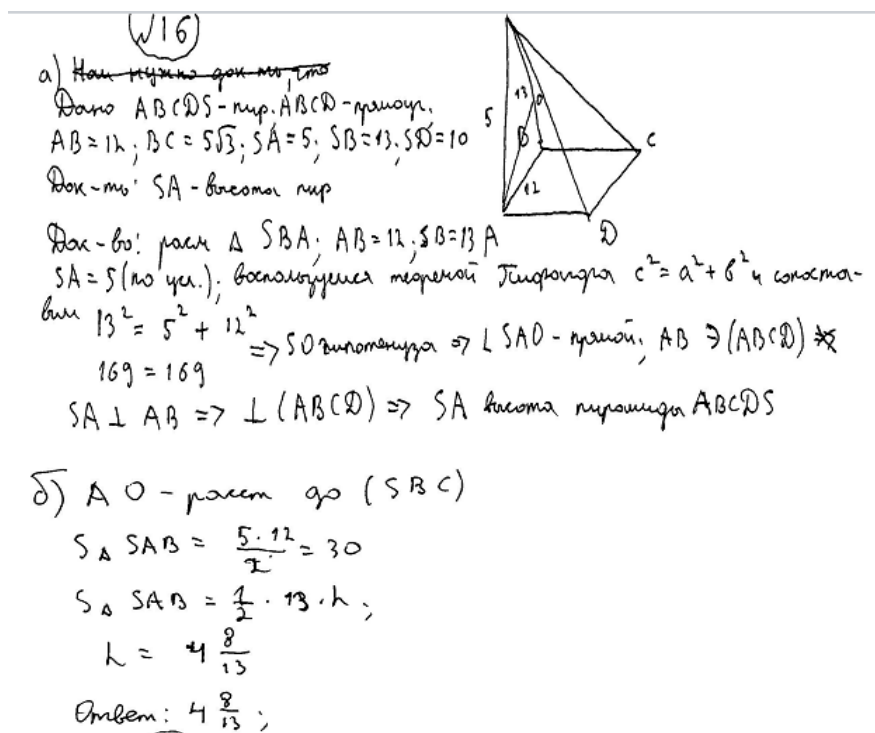 №16
а) Нам нужно док-ть, что
Дано ABCDS-пир. ABCD-прямоуг.
AB=12; BC=5√3; SA=5; SB=13; SD=10
Док-ть: SA-высота пир
Док-во: расм Δ SBA; AB=12; SB=13
SA=5(по усл.); воспользуемся теоремой Пифагора c²=a²+b² и сопоста-
вим 13²=5²+12²
169=169
=> SO гипотенуза => ∠SAO-прямой; AB ∋ (ABCD)
SA ⊥ AB => ⊥ (ABCD) => SA высота пирамиды ABCDS
5
13
O
B
C
12
A
D
б) AO-расст до (SBC)
S Δ SAB = 5·12/2 = 30
S Δ SAB = 1/2 · 13 · h;
h = 4 8/13
Ответ: 4 8/13;